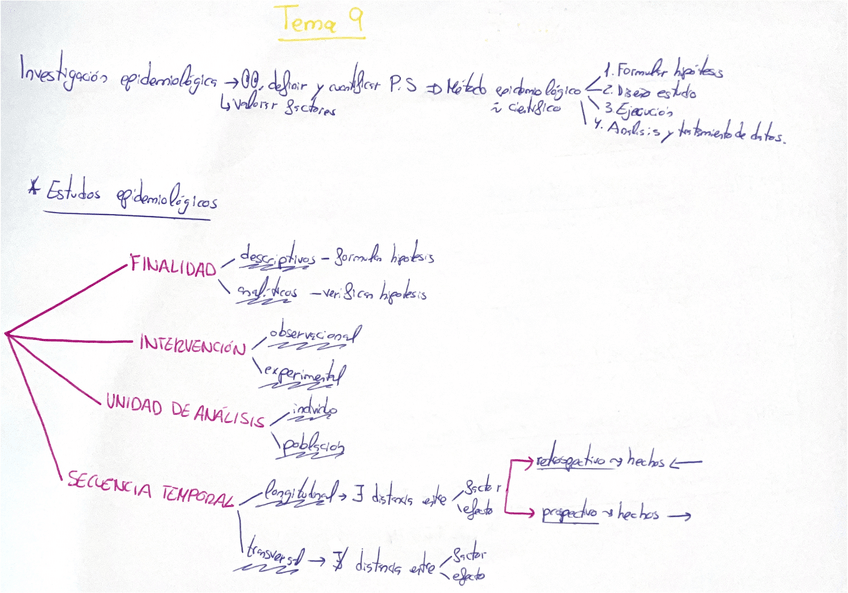 Tema 9
Investigación epidemiológica → definir y cuantificar P.S ⇒ Método epidemiológico
↳ valorar factores
científico
1. Formular hipótesis
2. Diseño estudio
3. Ejecución
4. Análisis y tratamiento de datos.
* Estudos epidemiológicos
FINALIDAD
descriptivos - formular hipotesis
analíticos - verifican hipotesis
INTERVENCIÓN
observacional
experimental
UNIDAD DE ANÁLISIS
individuo
población
SECUENCIA TEMPORAL
longitudinal → ∃ distancia entre
factor
efecto
retrospectivo → hechos ←
prospectivo → hechos →
transversal → ∄ distancia entre
factor
efecto